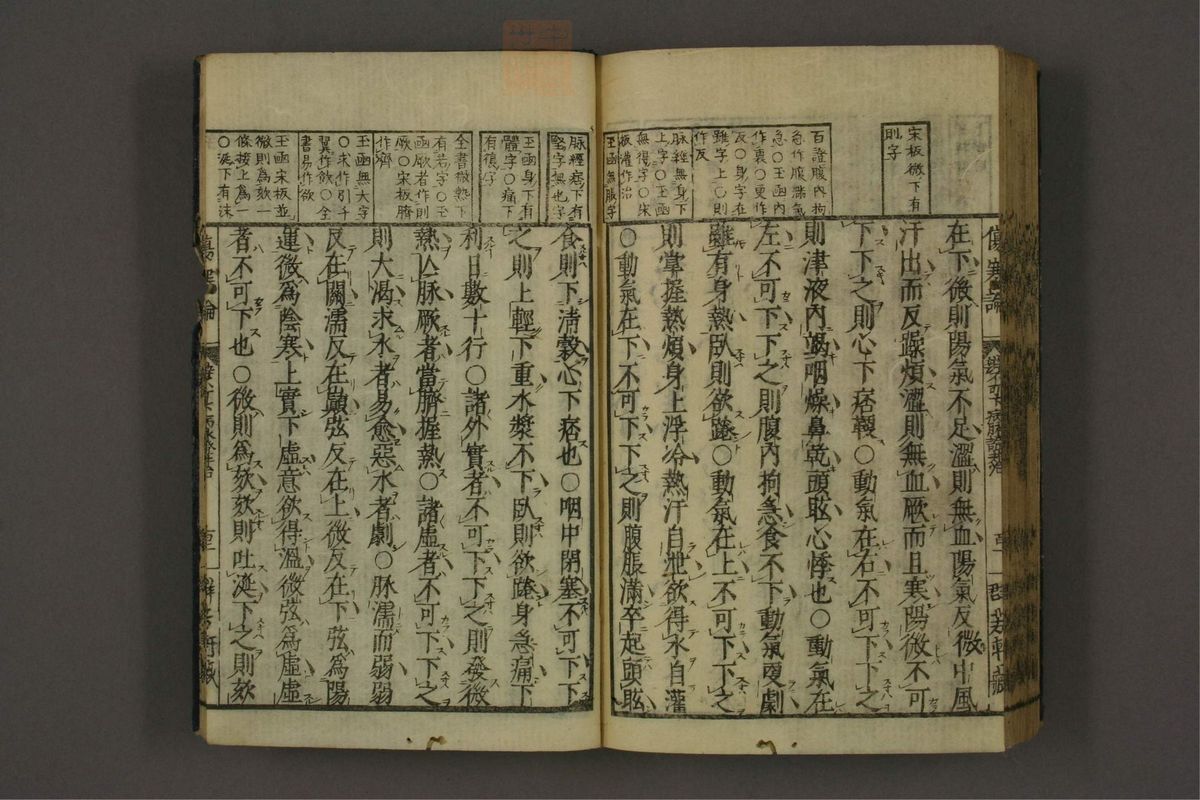 宋板微下有
則字
百證腹內拘
急作腹滿氣
急〇玉函內
作裏〇更作
反〇身字在
雖字上〇則
作反
脉經無身下
上字〇玉函
無得字〇宋
板灌作治
玉函無脹字
傷寒論
辨不可下病脉證并治
在下微則陽氣不足澀則無血陽氣反微中風
汗出而反躁煩澀則無血厥而且寒陽微不可
下下之則心下痞鞕〇動氣在右不可下下之
則津液內竭咽燥鼻乾頭眩心悸也〇動氣在
左不可下下之則腹內拘急食不下動氣更劇
雖有身熱臥則欲踡〇動氣在上不可下下之
則掌握熱煩身上浮冷熱汗自泄欲得水自灌
〇動氣在下不可下下之則腹脹滿卒起頭眩
脉經痞下有
堅字無也字
玉函身下有
體字〇痛下
有復字
全書微熱下
有若字〇玉
函厥者作則
厥〇宋板臍
作齊
玉函無大字
〇求作引千
翼作飲〇全
書易作欲
玉函宋板並
微則為欬一
條接上為一
〇涎下有沫
食則下清穀心下痞也〇咽中閉塞不可下下
之則上輕下重水漿不下臥則欲踡身急痛下
利日數十行〇諸外實者不可下下之則發微
熱亡脉厥者當臍握熱〇諸虛者不可下下之
則大渴求水者易愈惡水者劇〇脉濡而弱弱
反在關濡反在巔弦反在上微反在下弦爲陽
運微爲陰寒上實下虛意欲得溫微弦爲虛虛
者不可下也〇微則爲欬欬則吐涎下之則欬
傷寒論